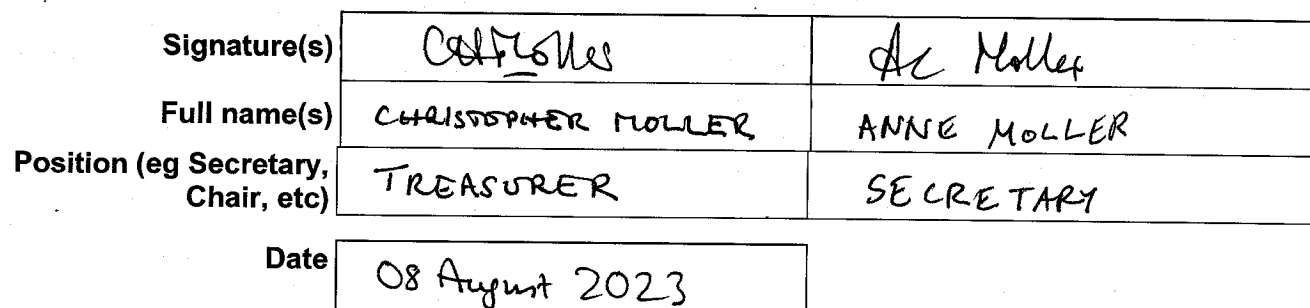 Signature(s) CHMoller AC Moller
Full name(s) CHRISTOPHER MOLLER ANNE MOLLER
Position (eg Secretary,
Chair, etc) TREASURER SECRETARY
Date 08 August 2023